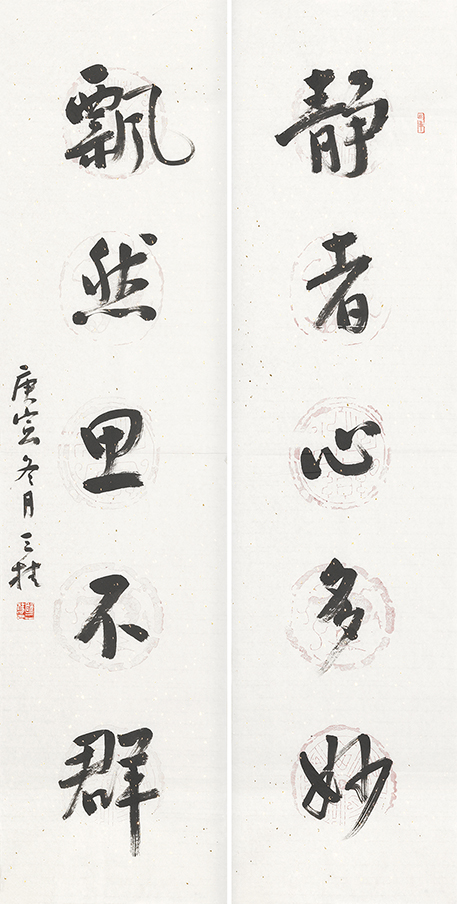 静者心多妙
飘然思不群
庚寅冬月